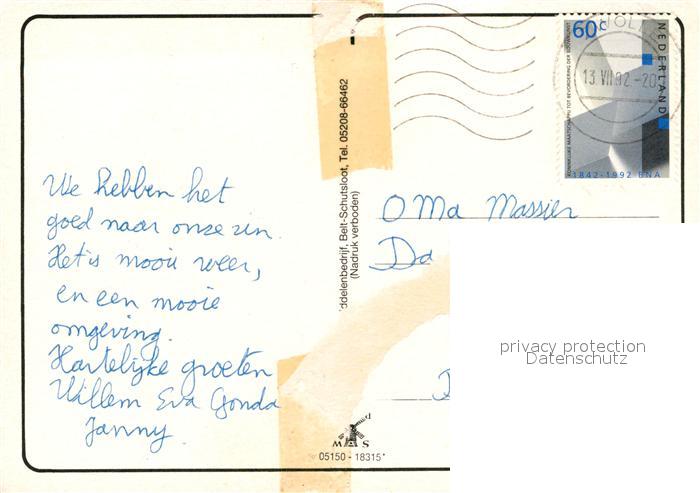 We hebben het
goed naar onze zin.
Het is mooi weer,
en een mooie
omgeving.
Hartelijke groeten
Willem Eva Gonda
Janny.
ddelenbedrijf, Belt-Schutsloot, Tel. 05208-66462
(Nadruk verboden)
MAS
05150 - 18315*
60c
NEDERLAND
KONINKLIJKE MAATSCHAPPIJ TOT BEVORDERING DER BOUWKUNST
1842-1992 BNA
13 VII 92 -20
OMa Massier
Da
privacy protection
Datenschutz